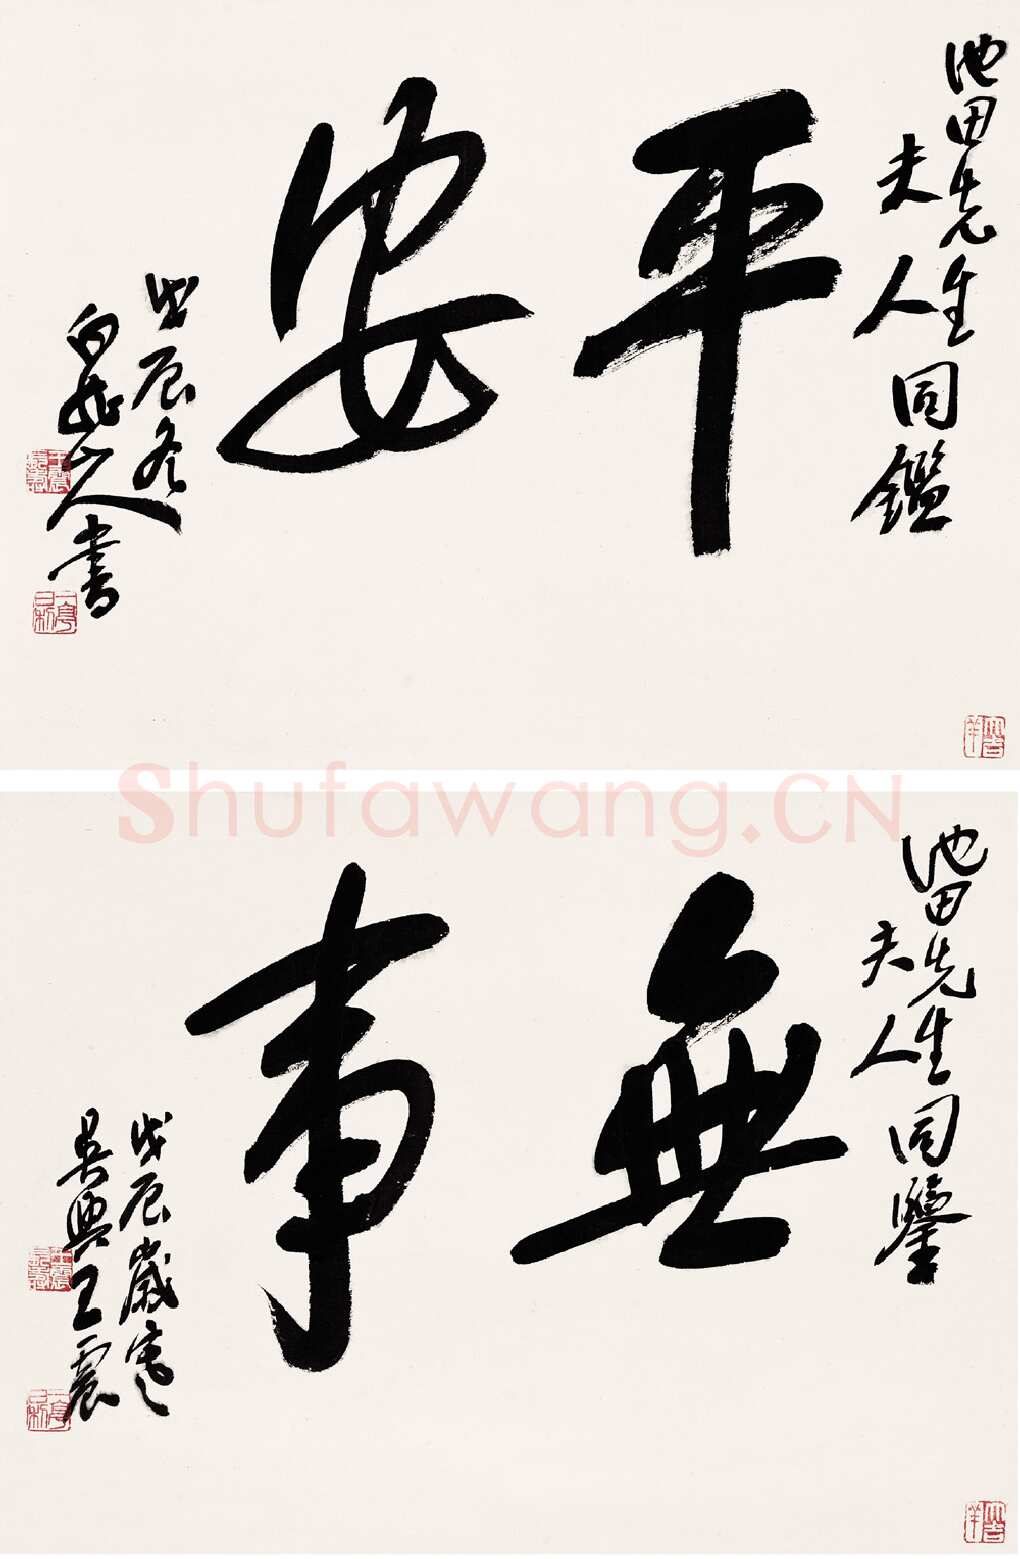 池田先生
夫人同鑑
平安
戊辰冬
白龍山人書
Shufawang.CN
池田先生
夫人同鑒
無事
戊辰歲寒
吳興王震